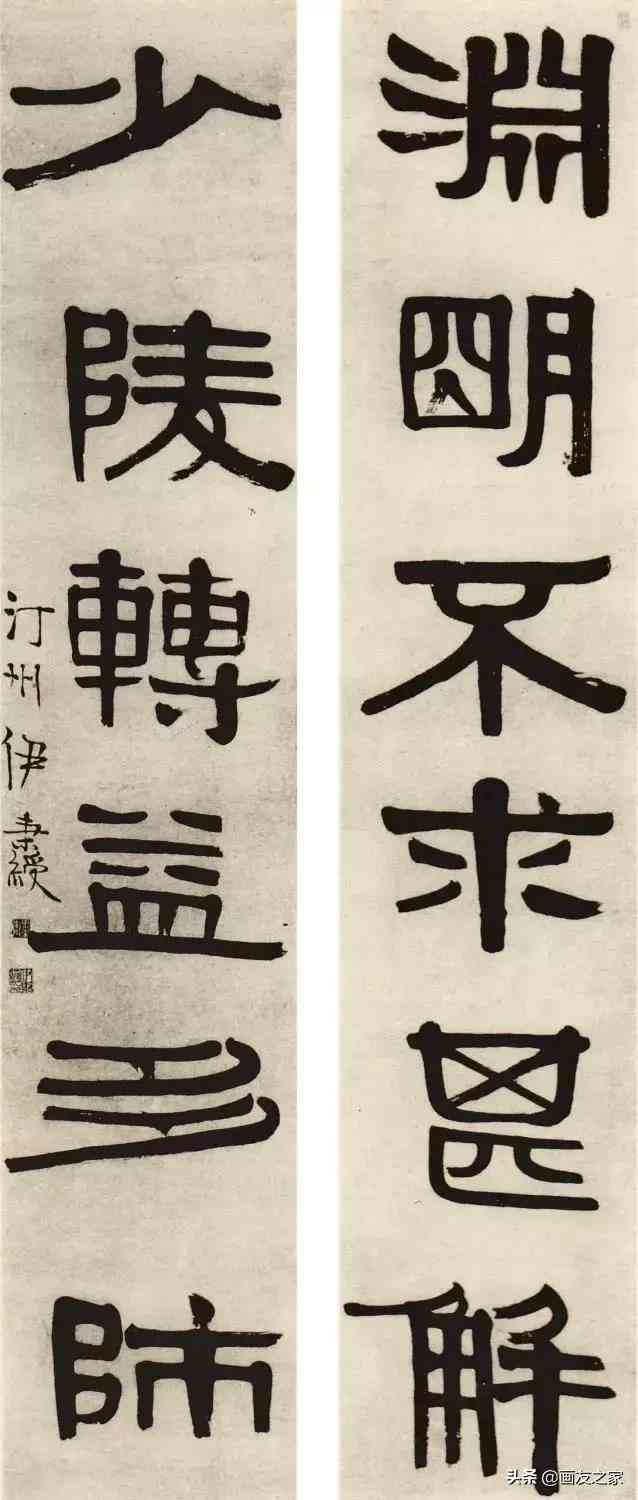 淵明不求甚解
少陵轉益多師
汀州伊秉綬
头条@画友之家